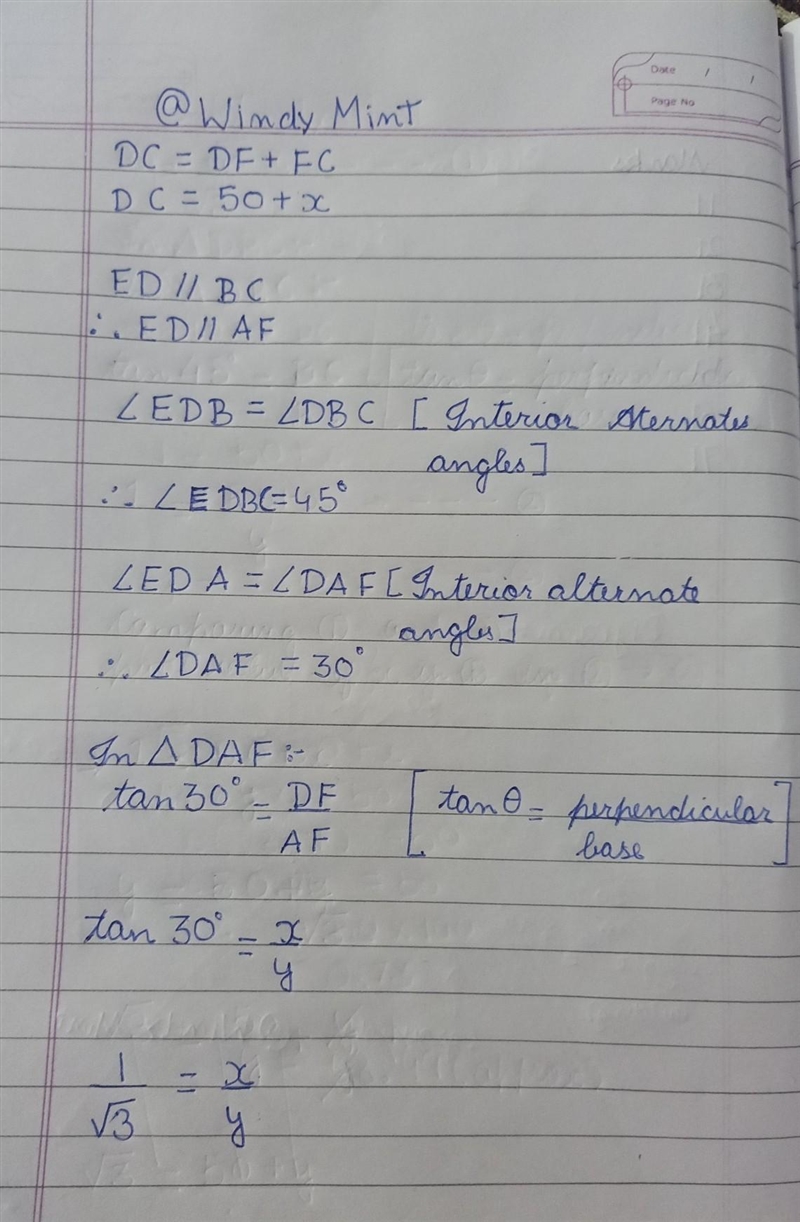 Date / /
Page No
@Windy Mint
DC = DF + FC
DC = 50 + x
ED // BC
∴ ED // AF
∠EDB = ∠DBC [Interior Alternates
angles]
∴ ∠EDBC=45°
∠EDA = ∠DAF [Interior alternate
angles]
∴ ∠DAF = 30°
In △DAF :-
tan 30° = DF/AF [tanθ = perpendicular/base]
tan 30° = x/y
1/√3 = x/y